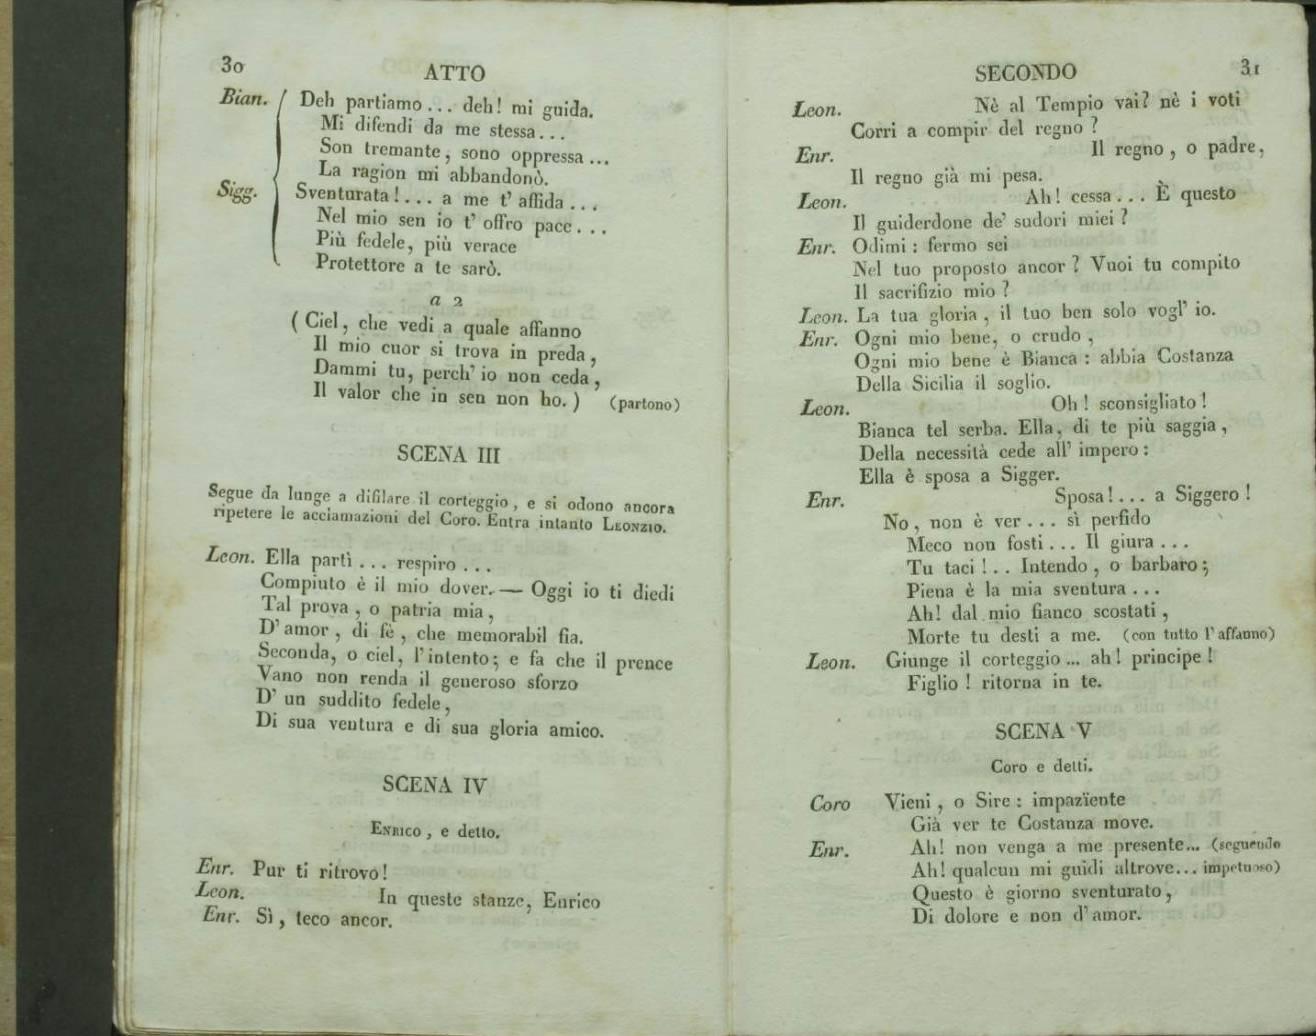 30
ATTO
Bian. Deh partiamo... deh! mi guida.
Mi difendi da me stessa...
Son tremante, sono oppressa...
La ragion mi abbandonò.
Sigg. Sventurata!... a me t' affida...
Nel mio sen io t' offro pace...
Più fedele, più verace
Protettore a te sarò.
a 2
(Ciel, che vedi a quale affanno
Il mio cuor si trova in preda,
Dammi tu, perch' io non ceda,
Il valor che in sen non ho.) (partono)
SCENA III
Segue da lunge a difilare il corteggio, e si odono ancora
ripetere le acciamazioni del Coro. Entra intanto LEONZIO.
Leon. Ella partì... respiro...
Compiuto è il mio dover. — Oggi io ti diedi
Tal prova, o patria mia,
D' amor, di fè, che memorabil fia.
Seconda, o ciel, l' intento; e fa che il prence
Vano non renda il generoso sforzo
D' un suddito fedele,
Di sua ventura e di sua gloria amico.
SCENA IV
ENRICO, e detto.
Enr. Pur ti ritrovo!
Leon. In queste stanze, Enrico
Enr. Sì, teco ancor.
SECONDO
31
Leon. Nè al Tempio vai? nè i voti
Corri a compir del regno?
Enr. Il regno, o padre,
Il regno già mi pesa.
Leon. Ah! cessa... È questo
Il guiderdone de' sudori miei?
Enr. Odimi: fermo sei
Nel tuo proposto ancor? Vuoi tu compito
Il sacrifizio mio?
Leon. La tua gloria, il tuo ben solo vogl' io.
Enr. Ogni mio bene, o crudo,
Ogni mio bene è Bianca: abbia Costanza
Della Sicilia il soglio.
Leon. Oh! sconsigliato!
Bianca tel serba. Ella, di te più saggia,
Della necessità cede all' impero:
Ella è sposa a Sigger.
Enr. Sposa!... a Siggero!
No, non è ver... sì perfido
Meco non fosti... Il giura...
Tu taci!.. Intendo, o barbaro;
Piena è la mia sventura...
Ah! dal mio fianco scostati,
Morte tu desti a me. (con tutto l' affanno)
Leon. Giunge il corteggio... ah! principe!
Figlio! ritorna in te.
SCENA V
Coro e detti.
Coro Vieni, o Sire: impazïente
Già ver te Costanza move.
Enr. Ah! non venga a me presente... (seguendo
Ah! qualcun mi guidi altrove... impetuoso)
Questo è giorno sventurato,
Di dolore e non d' amor.